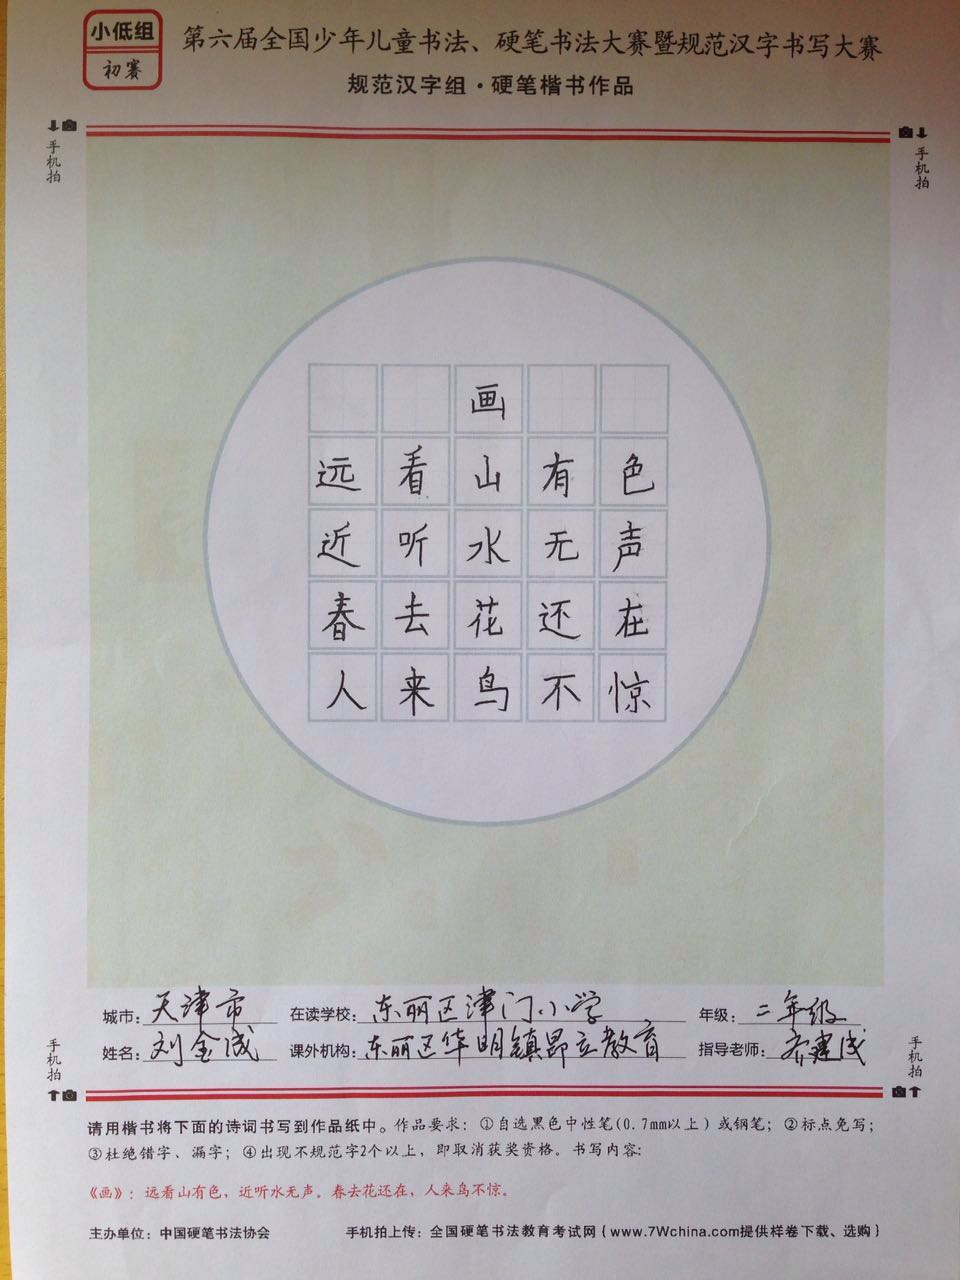 小低组
初赛
第六届全国少年儿童书法、硬笔书法大赛暨规范汉字书写大赛
规范汉字组·硬笔楷书作品
手机拍
手机拍
画
远看山有色
近听水无声
春去花还在
人来鸟不惊
城市：天津市 在读学校：东丽区津门小学 年级：二年级
姓名：刘金成 课外机构：东丽区华明镇昂立教育 指导老师：齐建成
手机拍
手机拍
请用楷书将下面的诗词书写到作品纸中。作品要求：①自选黑色中性笔(0.7mm以上)或钢笔；②标点免写；
③杜绝错字、漏字；④出现不规范字2个以上，即取消获奖资格。书写内容：
《画》：远看山有色，近听水无声。春去花还在，人来鸟不惊。
主办单位：中国硬笔书法协会 手机拍上传：全国硬笔书法教育考试网{www.7Wchina.com提供样卷下载、选购}